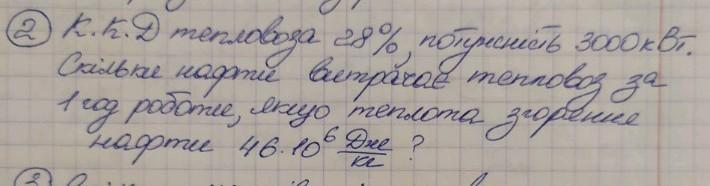 ② К.К.Д тепловоза 28%, потужність 3000кВт.
Скільки нафти витрачає тепловоз за
1 год роботи, якщо теплота згорение
нафти 46·10⁶ Дж/кг ?